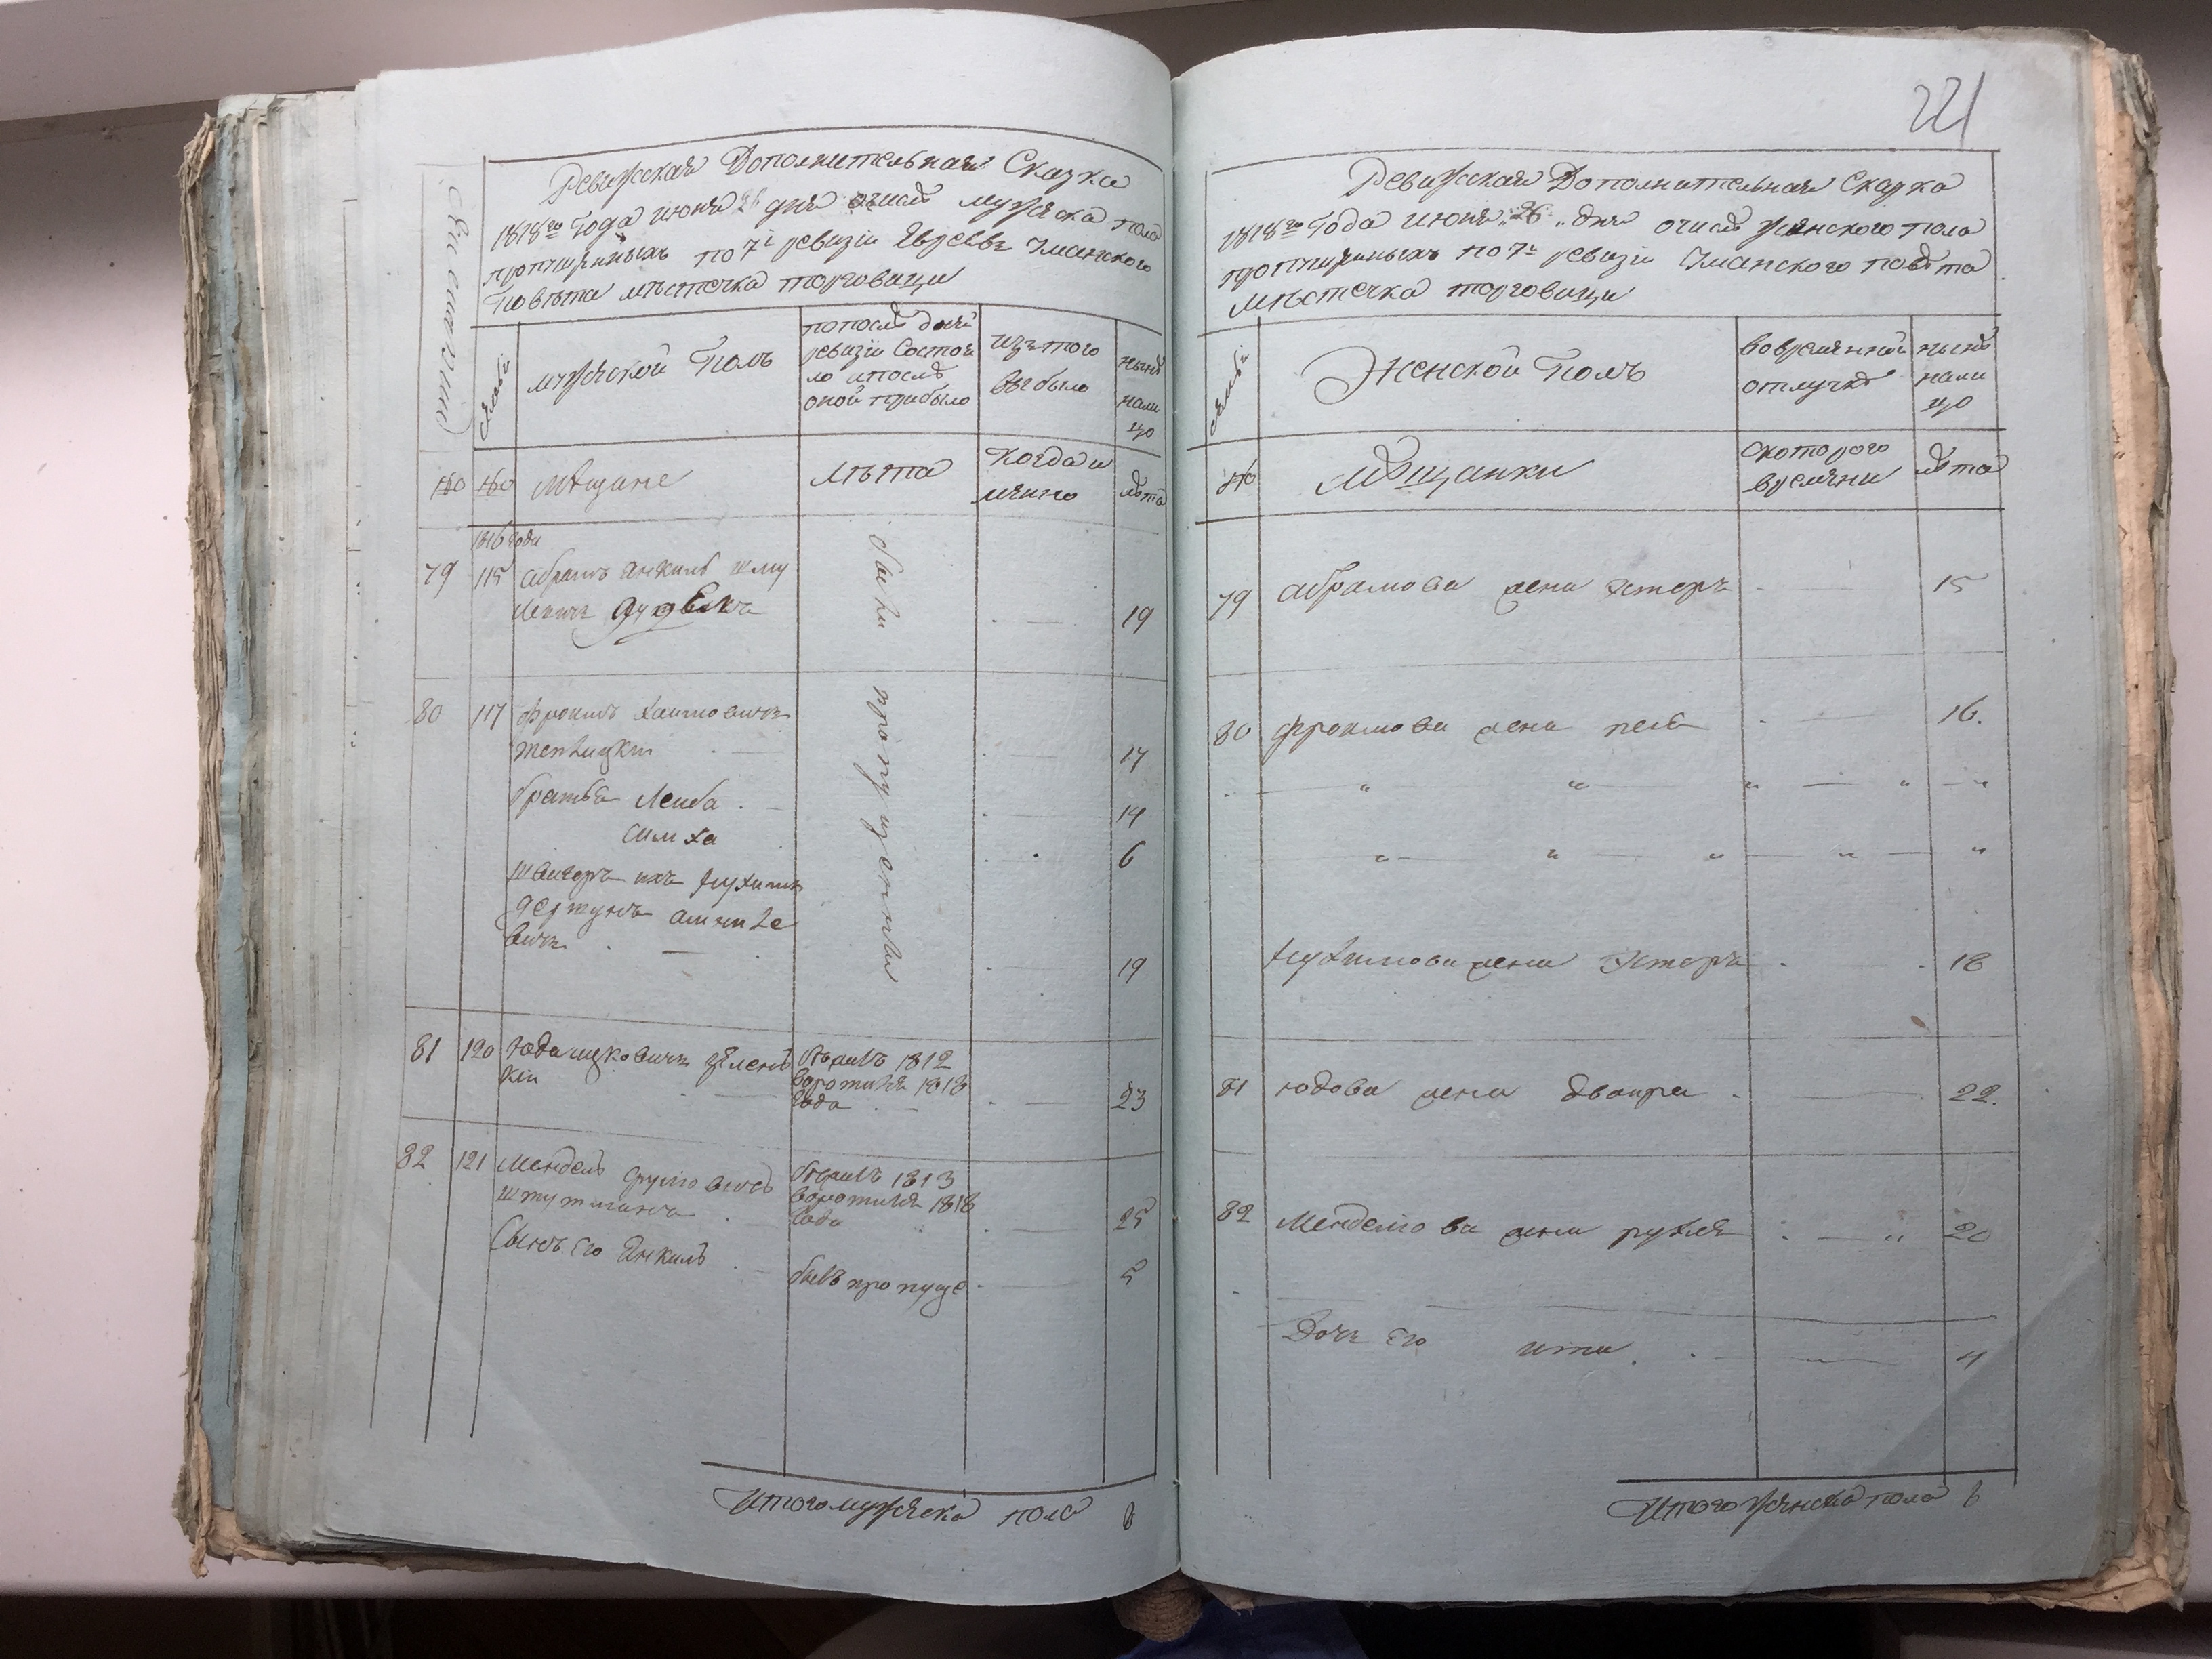 Ревижская Дополнительная Сказка
1818го Года июня 26 дня очислѣ мужеска пола
пропущенныхъ по 7й ревизiи Евреевъ Уманского
Повѣта мѣстечка торговици
мужеской Полъ
попослѣдней
ревизiи Состоя
ло ипослѣ
оной прибыло
изъ того
выбыло
нынѣ
нали
цо
мѣщане
лѣта
когда и
имянно
лѣта
1816 года
79 115 абрамъ Янкиль шму
левичъ Дудникъ
19
были пропущенны
80 117 Фроимъ Хаимовичъ
17
братья Лейба
14
Симха
6
швагеръ ихъ Нухимъ
вичъ
19
81 120 Юда ицковичъ зѣленъ
кiй
бѣжалъ 1812
воротился 1818
года
23
82 121 Мендель Срулiовичъ
бѣжалъ 1813
воротился 1818
года
25
Сынъ Его Янкиль
былъ пропуще
5
Итого мужеска пола 8
221
Ревижская Дополнительная Сказка
1818го Года июня 26 дня очислѣ женского пола
пропущенныхъ по 7й ревизiи Уманского повѣта
мѣстечка торговици
Женской Полъ
вовремянной
отлучкѣ
нынѣ
нали
цо
мѣщанки
скоторого
времяни
лѣта
79 абрамова жена Эстеръ 15
80 Фроимова жена песя 16.
Нухимова жена Эстеръ 18
81 юдова жена Двойра 22.
82 Менделiова жена рухля 20
Дочь Его ита 4
Итого женска пола 6